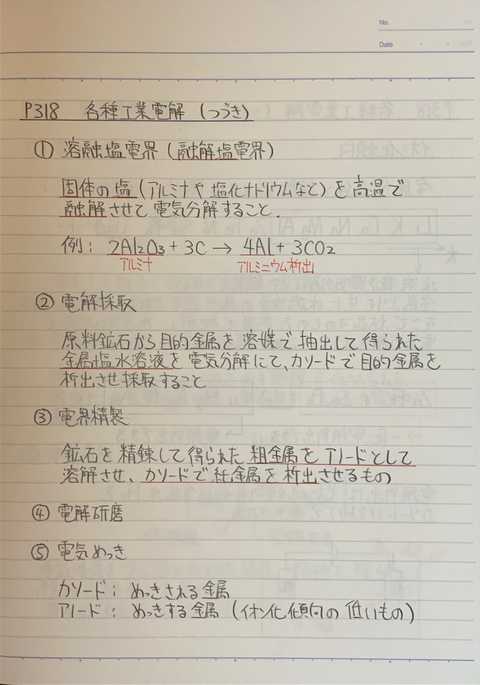 No.
Date
P318 各種工業電解 (つづき)
① 溶融塩電界 (融解塩電界)
固体の塩 (アルミナや 塩化ナトリウムなど) を高温で
融解させて 電気分解すること.
例: 2Al₂O₃ + 3C → 4Al + 3CO₂
アルミナ アルミニウム析出
② 電解採取
原料鉱石から目的金属を 溶媒で抽出して得られた
金属塩水溶液を 電気分解にて、カソードで目的金属を
析出させ採取すること
③ 電界精製
鉱石を 精錬して得られた 粗金属を アノードとして
溶解させ、カソードで純金属を 析出させるもの
④ 電解研磨
⑤ 電気めっき
カソード: めっきされる金属
アノード: めっきする金属 (イオン化傾向の低いもの)